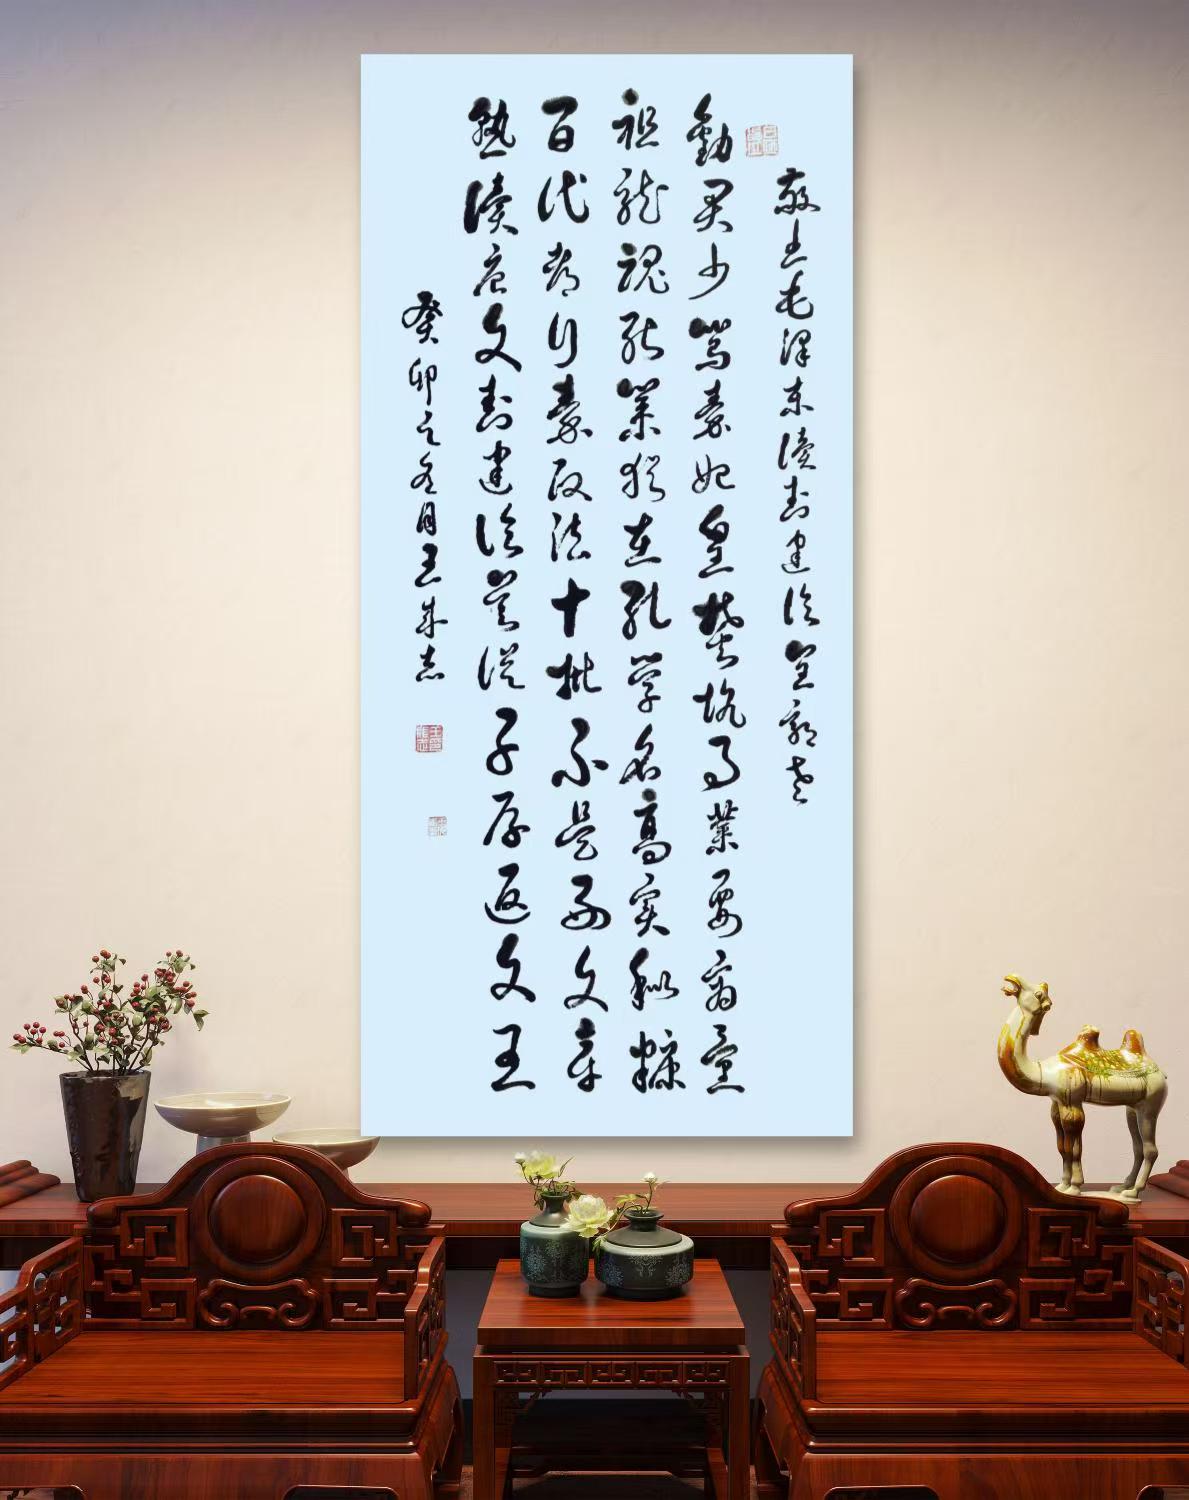 敬书毛泽东读封建论呈郭老
劝君少骂秦始皇焚坑事業要商量
祖龙魂死業犹在孔学名高实秕糠
百代都行秦政法十批不是好文章
熟读唐文封建论莫从子厚返文王
癸卯之冬月王成志